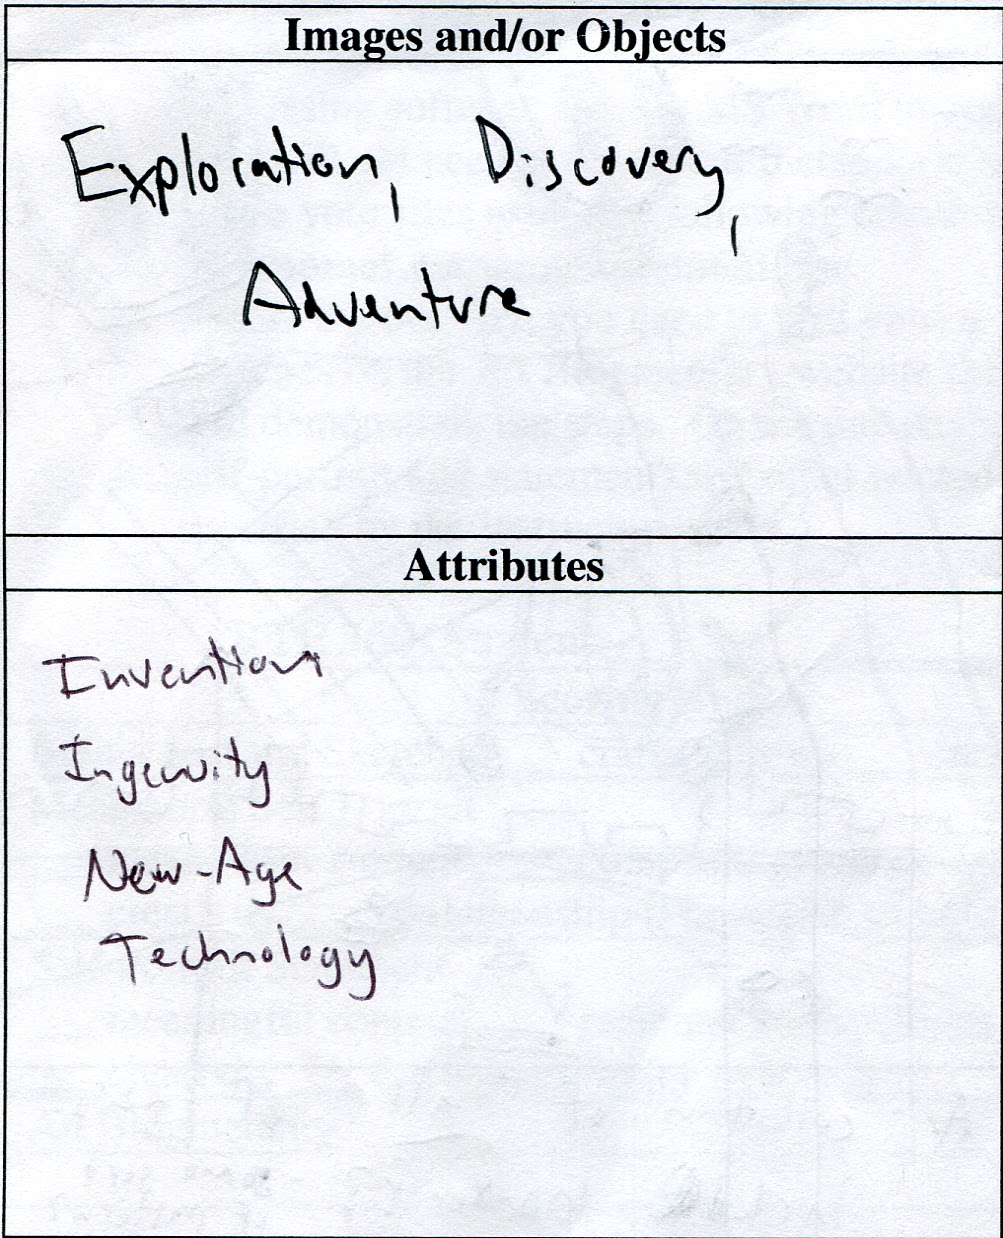 Images and/or Objects
Exploration, Discovery,
Adventure
Attributes
Inventions
Ingenuity
New-Age
Technology